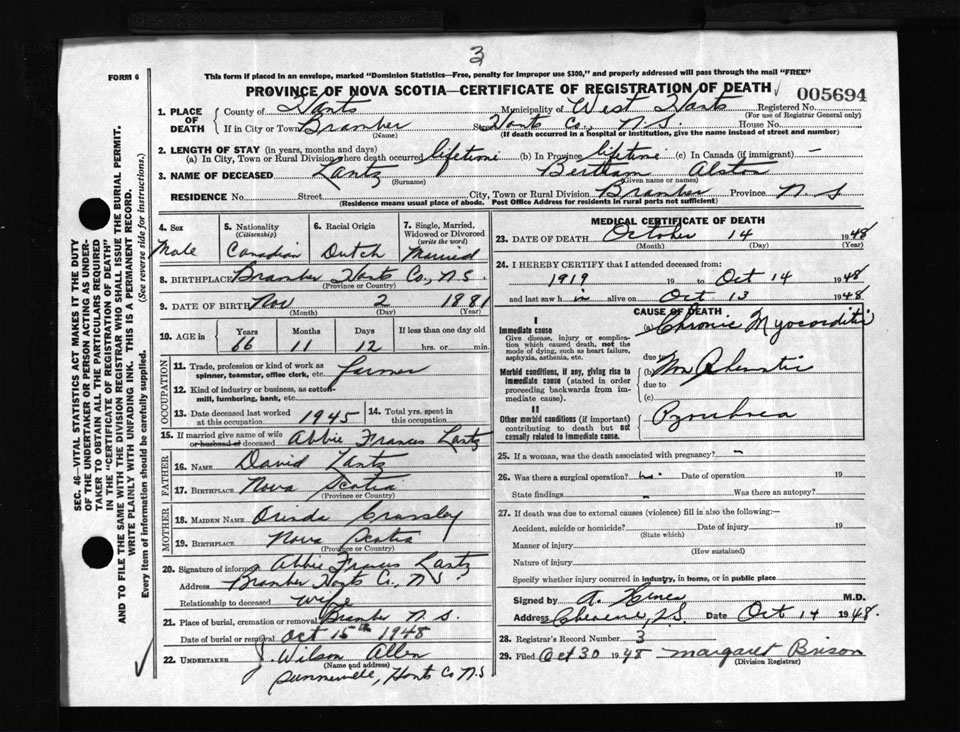 3
FORM 6
This form if placed in an envelope, marked "Dominion Statistics—Free, penalty for improper use $300," and properly addressed will pass through the mail "FREE"
PROVINCE OF NOVA SCOTIA—CERTIFICATE OF REGISTRATION OF DEATH 005694
1. PLACE OF DEATH
County of Hants Municipality of West Hants Registered No.
(For use of Registrar General only)
If in City or Town Bramber Street Hants Co., N.S. House No.
(Name) (If death occurred in a hospital or institution, give the name instead of street and number)
2. LENGTH OF STAY (in years, months and days)
(a) In City, Town or Rural Division where death occurred lifetime (b) In Province lifetime (c) In Canada (if immigrant) —
3. NAME OF DECEASED Lantz Bertham Alston
(Surname) (Given name or names)
RESIDENCE No. Street City, Town or Rural Division Bramber Province N S
(Residence means usual place of abode. Post Office Address for residents in rural parts not sufficient)
4. Sex
Male
5. Nationality
(Citizenship)
Canadian
6. Racial Origin
Dutch
7. Single, Married, Widowed or Divorced
(write the word)
Married
8. BIRTHPLACE Bramber Hants Co, N.S.
(Province or Country)
9. DATE OF BIRTH Nov 2 1881
(Month) (Day) (Year)
10. AGE
Years Months Days If less than one day old
66 11 12 hrs. or min.
OCCUPATION
11. Trade, profession or kind of work as
spinner, teamster, office clerk, etc. farmer
12. Kind of industry or business, as cotton-
mill, lumbering, bank, etc.
13. Date deceased last worked
at this occupation 1945
14. Total yrs. spent in
this occupation
15. If married give name of wife
or husband of deceased Abbie Frances Lantz
FATHER
16. NAME David Lantz
17. BIRTHPLACE Nova Scotia
(Province or Country)
MOTHER
18. MAIDEN NAME Orinda Crossley
19. BIRTHPLACE Nova Scotia
(Province or Country)
20. Signature of informant Abbie Frances Lantz
Address Bramber Hants Co., N.S.
Relationship to deceased wife
21. Place of burial, cremation or removal Bramber N.S.
Date of burial or removal Oct 15th 1948
22. UNDERTAKER J. Wilson Allen
(Name and address)
Hants Co N.S
MEDICAL CERTIFICATE OF DEATH
23. DATE OF DEATH October 14 1948
(Month) (Day) (Year)
24. I HEREBY CERTIFY that I attended deceased from:
1919 19 to Oct 14 1948
and last saw h im alive on Oct 13 1948
CAUSE OF DEATH
I
Immediate cause
Give disease, injury or complication which caused death, not the mode of dying, such as heart failure, asphyxia, asthenia, etc.
(a) Chronic Myocarditis
due to
Morbid conditions, if any, giving rise to immediate cause (stated in order proceeding backwards from immediate cause).
(b)
due to
(c)
II
Other morbid conditions (if important) contributing to death but not causally related to immediate cause.
Pyorrhoea
25. If a woman, was the death associated with pregnancy? —
26. Was there a surgical operation? no Date of operation 19
State findings — Was there an autopsy?
27. If death was due to external causes (violence) fill in also the following:—
Accident, suicide or homicide? Date of injury 19
(State which)
Manner of injury
(How sustained)
Nature of injury
Specify whether injury occurred in industry, in home, or in public place
Signed by M.D.
Address Date Oct 14 1948.
28. Registrar's Record Number 3
29. Filed Oct 30 1948 Margaret Brison
(Division Registrar)
SEC. 46—VITAL STATISTICS ACT MAKES IT THE DUTY
OF THE UNDERTAKER OR PERSON ACTING AS UNDER-
TAKER TO OBTAIN ALL THE PARTICULARS REQUIRED
IN THE "CERTIFICATE OF REGISTRATION OF DEATH"
AND TO FILE THE SAME WITH THE DIVISION REGISTRAR WHO SHALL ISSUE THE BURIAL PERMIT.
WRITE PLAINLY WITH UNFADING INK. THIS IS A PERMANENT RECORD.
Every item of information should be carefully supplied. (See reverse side for instructions.)